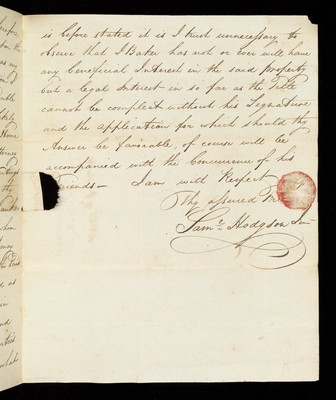 is before stated it is I trust unnecessary to
observe that J Baker has not or ever will have
any beneficial Interest in the said property
but a legal Interest in so far as the Title
cannot be compleat without his Signature
and the application for which should thy
Answer be favorable, of course will be
accompanied with the Concurrence of his
Friends — I am with Respect
Thy assured Friend
Saml. Hodgson